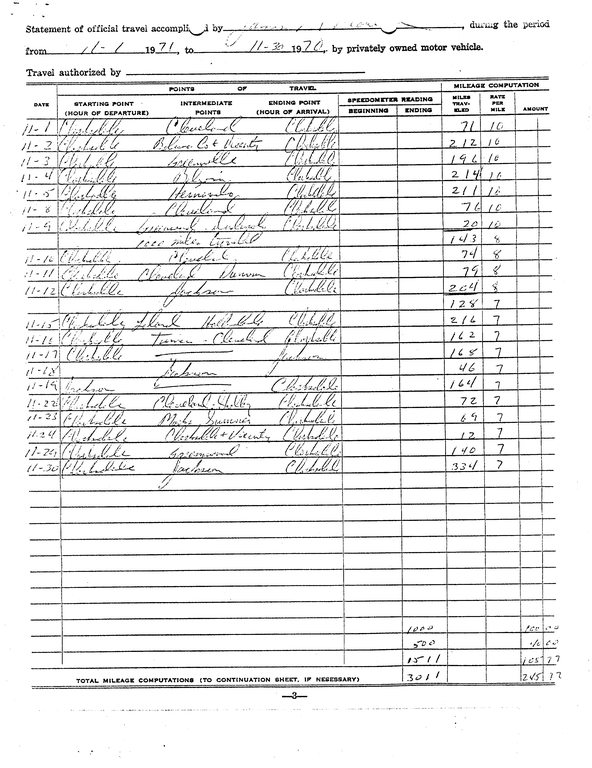 Statement of official travel accomplished by , during the period
from 11-1 1971, to 11-30 1970, by privately owned motor vehicle.
Travel authorized by
POINTS OF TRAVEL MILEAGE COMPUTATION
DATE STARTING POINT (HOUR OF DEPARTURE) INTERMEDIATE POINTS ENDING POINT (HOUR OF ARRIVAL) SPEEDOMETER READING BEGINNING ENDING MILES TRAV-ELED RATE PER MILE AMOUNT
11-1 Clarksdale Cleveland Clarksdale 71 10
11-2 Clarksdale Bolivar Co + Vicinity Clarksdale 212 10
11-3 Clarksdale Greenville Clarksdale 196 10
11-4 Clarksdale Clarksdale 214 10
11-5 Clarksdale Hernando Clarksdale 211 10
11-8 Clarksdale Cleveland Clarksdale 76 10
11-9 Clarksdale Greenwood Clarksdale 20 10
1000 miles traveled 143 8
11-10 Clarksdale Cleveland Clarksdale 74 8
11-11 Clarksdale Cleveland Clarksdale 79 8
11-12 Clarksdale Jackson Clarksdale 204 8
128 7
11-15 Clarksdale Clarksdale 216 7
11-16 Clarksdale - Cleveland Clarksdale 162 7
11-17 Clarksdale Jackson 168 7
11-18 Jackson 46 7
11-19 Jackson Clarksdale 164 7
11-22 Clarksdale Cleveland, Shelby Clarksdale 72 7
11-23 Clarksdale Marks Sumner Clarksdale 69 7
11-24 Clarksdale Clarksdale + Vicinity Clarksdale 12 7
11-29 Clarksdale Greenwood Clarksdale 140 7
11-30 Clarksdale Jackson Clarksdale 334 7
1000 100 00
500 40 00
1511 105 77
TOTAL MILEAGE COMPUTATIONS (TO CONTINUATION SHEET, IF NESESSARY) 3011 245 77
—3—